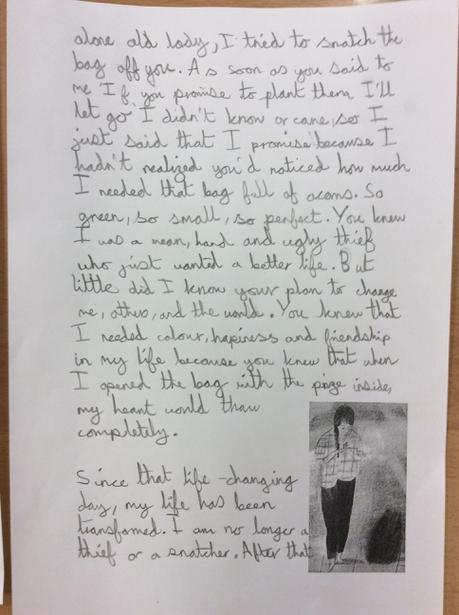 alone old lady, I tried to snatch the
bag off you. As soon as you said to
me 'If you promise to plant them I'll
let go' I didn't know or care, so I
just said that I promise because I
hadn't realized you'd noticed how much
I needed that bag full of acorns. So
green, so small, so perfect. You knew
I was a mean, hard and ugly thief
who just wanted a better life. But
little did I know your plan to change
me, others, and the world. You knew that
I needed colour, hapiness and friendship
in my life because you knew that when
I opened the bag with the prize inside,
my heart would thaw
completely.
Since that life-changing
day, my life has been
transformed. I am no longer a
thief or a snatcher. After that